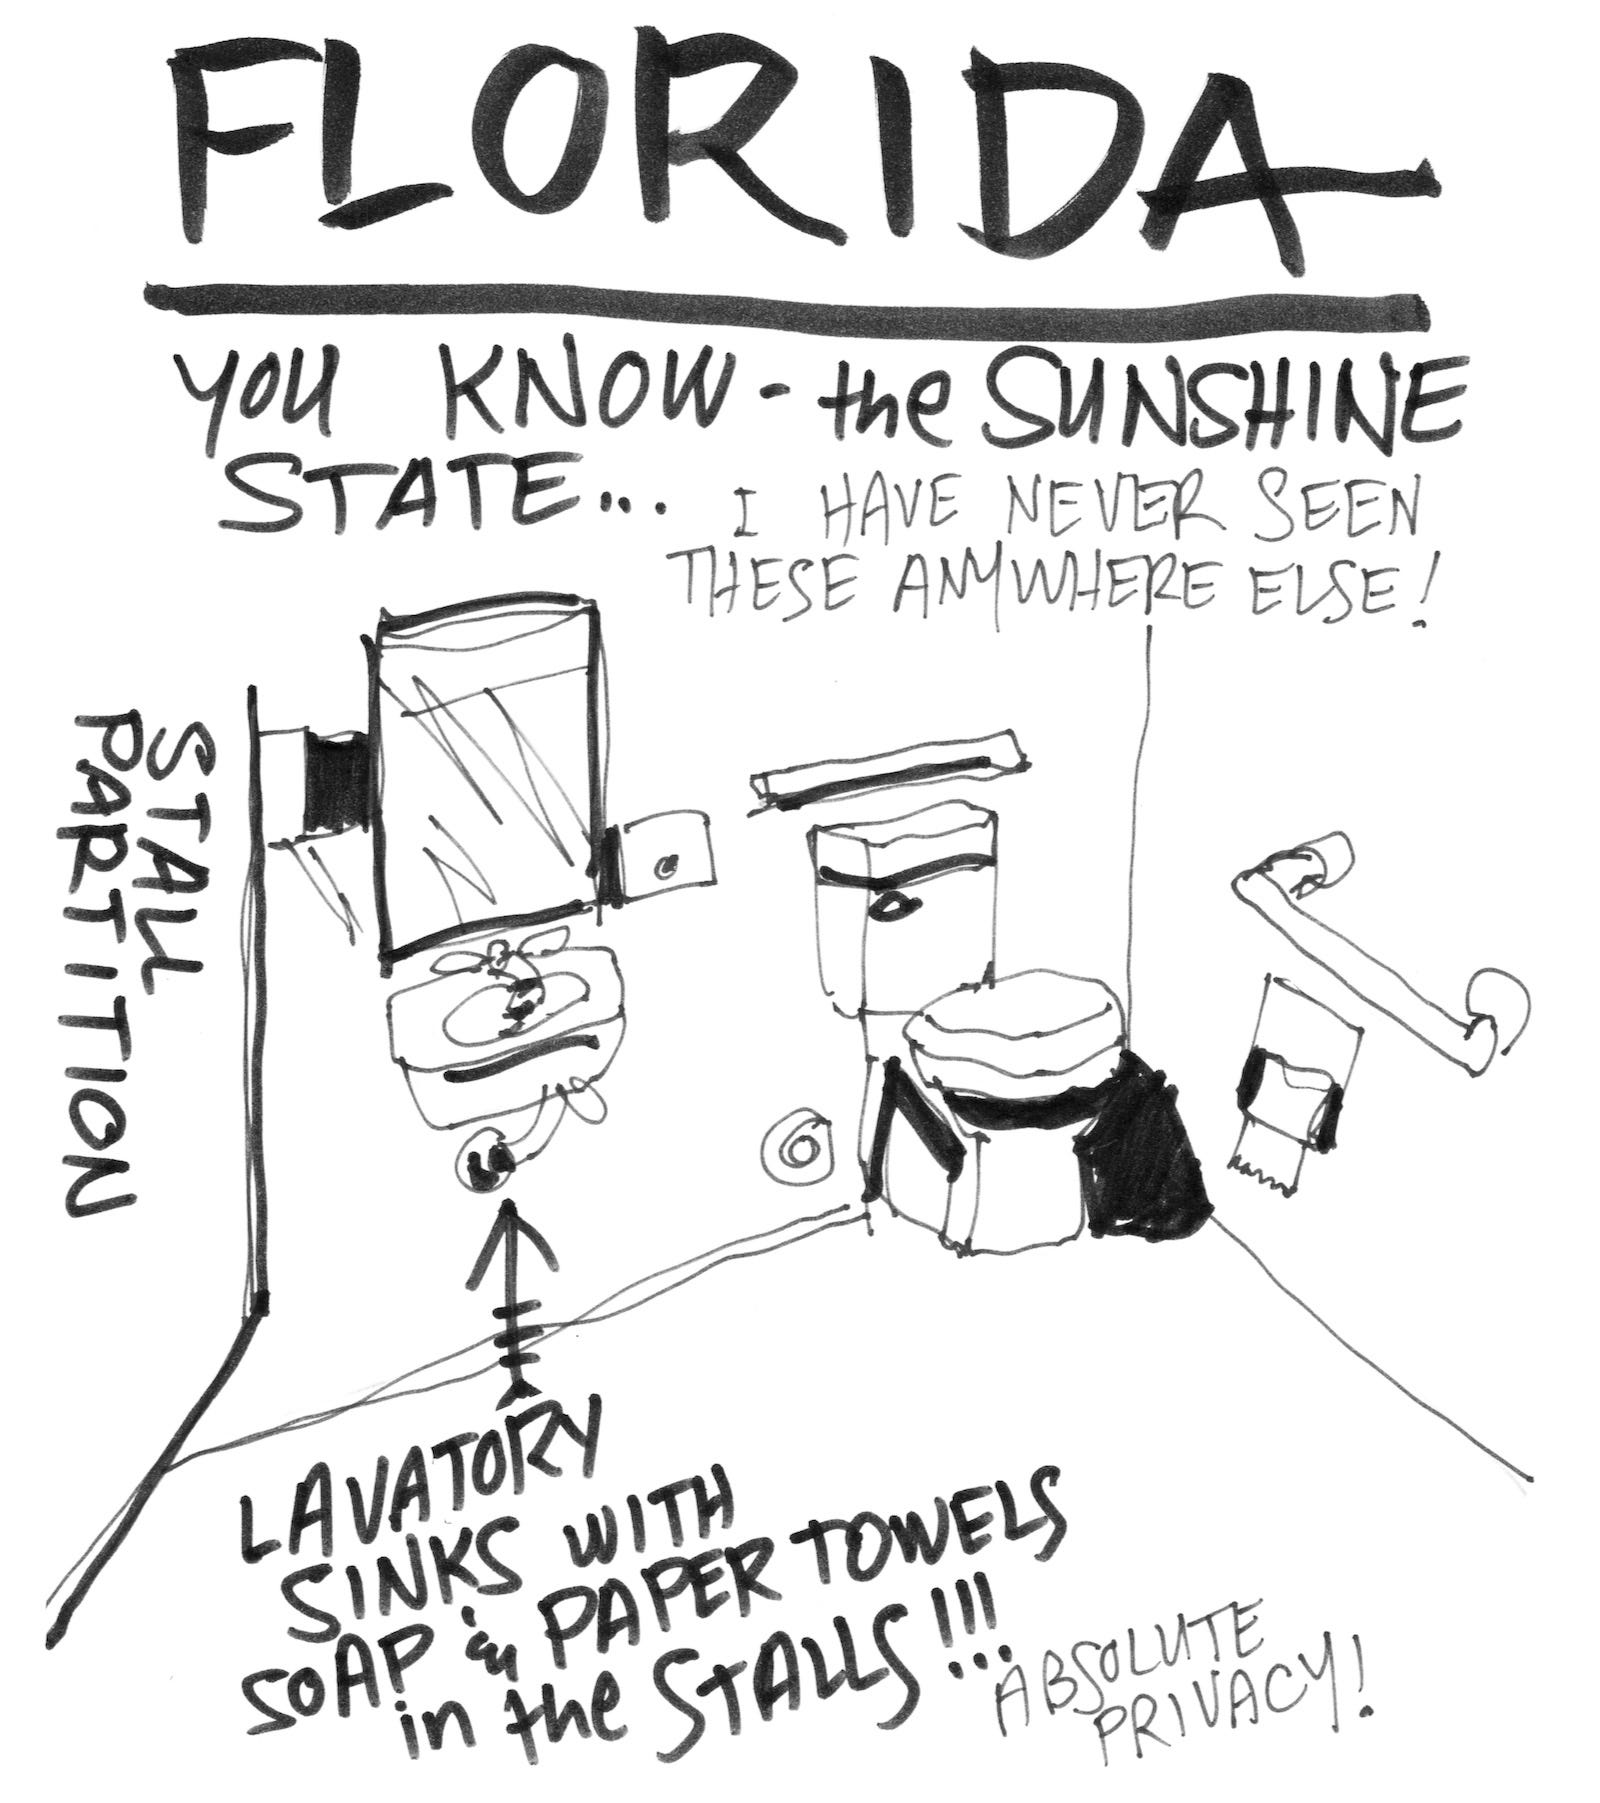 FLORIDA
YOU KNOW - the SUNSHINE
STATE...
I HAVE NEVER SEEN
THESE ANYWHERE ELSE!
STALL
PARTITION
LAVATORY
SINKS WITH
SOAP & PAPER TOWELS
in the STALLS!!!
ABSOLUTE
PRIVACY!